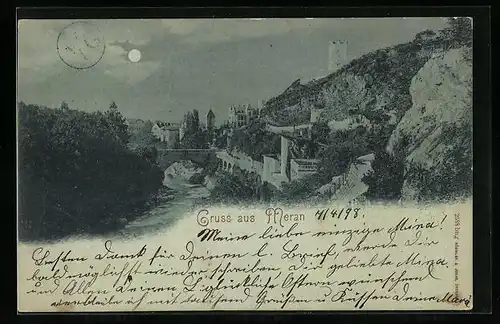 Gruss aus Meran
7/4/98.
Meine liebe einzige Mina!
Besten Dank für Deinen l. Brief, werde Dir
baldmöglichst wieder schreiben. Dir geliebte Mina,
und Allen Deinen Lieben glückliche Ostern wünschend
verbleibe ich mit tausend Grüßen u Küssen Deine Mari